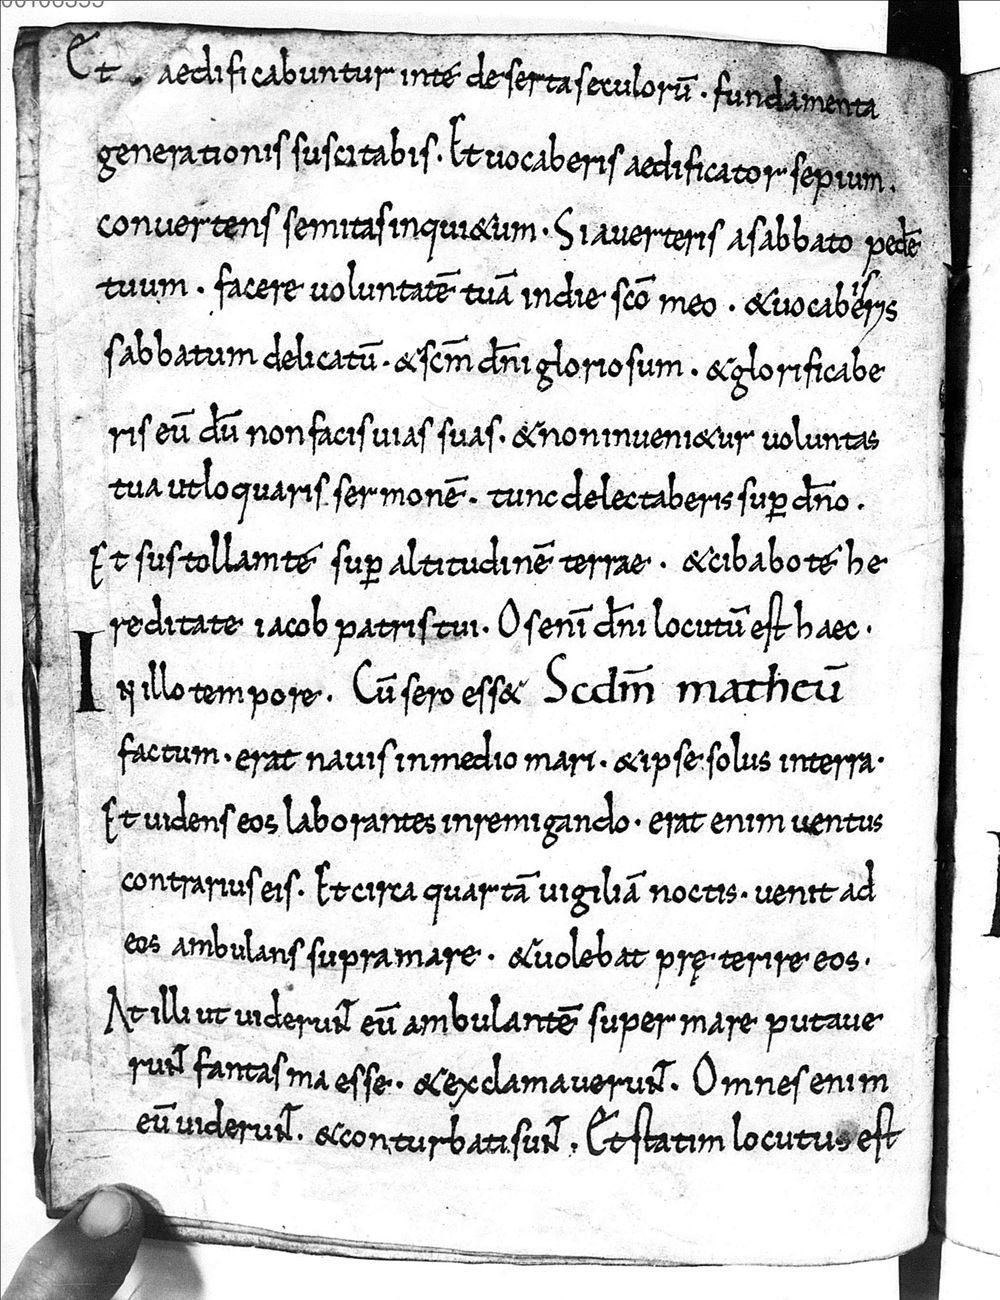 Et aedificabuntur inte deserta seculorū · fundamenta
generationis suscitabis · Et uocaberis aedificator sepium ·
conuertens semitas inqui&um · Si auerteris asabbato pedē
tuum · facere uoluntatē tuā indie sc̄o meo · &uocaberis
sabbatum delicatū · &sc̄m dn̄i gloriosum · &glorificabe
ris eū dū non facis uias suas · &non inueni&ur uoluntas
tua utloquaris sermonē · tunc delectaberis sup̄ dn̄o ·
Et sustollam té sup̄ altitudinē terrae · &cibabo té he
reditate iacob patris tui · Os enī dn̄i locutū est haec ·
In illo tempore · Cū sero ess& Scdm̄ matheū
factum · erat nauis inmedio mari · &ipse solus interra ·
Et uidens eos laborantes inremigando · erat enim uentus
contrarius eis · Et circa quartā uigiliā noctis · uenit ad
eos ambulans supra mare · &uolebat pręterire eos ·
At illi ut uiderunt eū ambulantē super mare putaue
runt fantasma esse · &exclamauerunt · Omnes enim
eū uiderunt · &conturbati sunt · Et statim locutus est